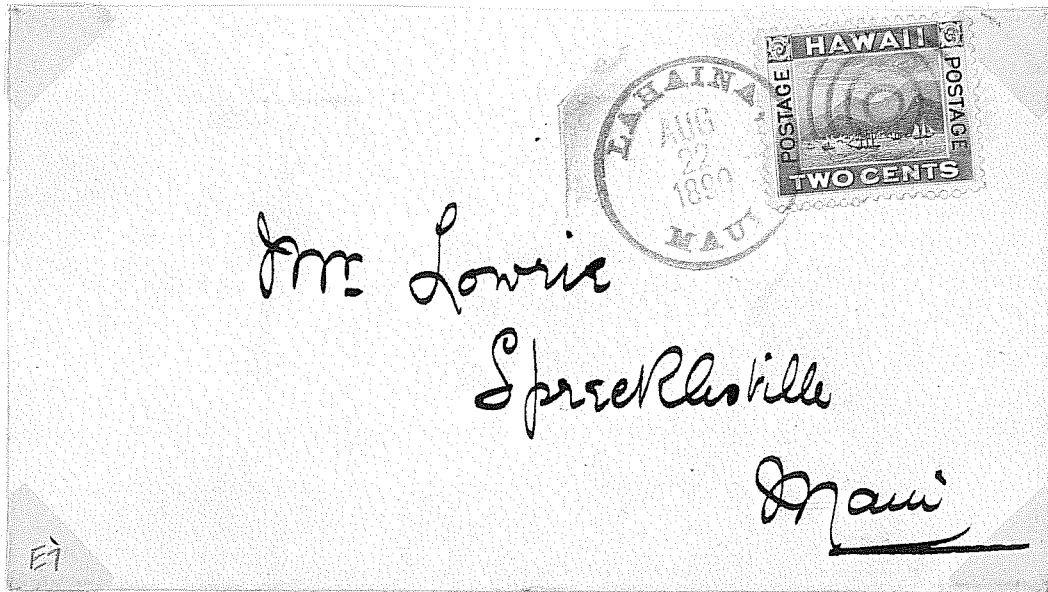 HAWAII
POSTAGE
POSTAGE
TWO CENTS
LAHAINA,
AUG
22
MAUI
Mr. Lowrie
Sprecklesville
Maui